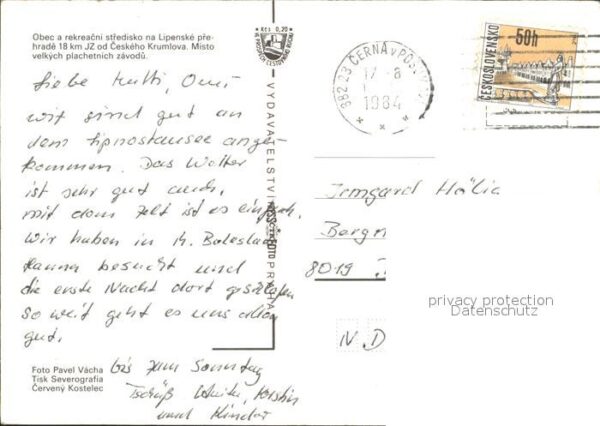 Obec a rekreační středisko na Lipenské pře-
hradě 18 km JZ od Českého Krumlova. Místo
velkých plachetních závodů.
Kčs 0,20
Liebe Mutti, Omi
wir sind gut an
dem Lipnostausee ange-
kommen. Das Wetter
ist sehr gut auch,
mit dem Zelt ist es einfach.
Wir haben in M. Boleslav
Hanna besucht und
die erste Nacht dort geschlafen
so weit geht es uns allen
gut.
bis zum Sonntag
Tschüß
und Kinder
Foto Pavel Vácha
Tisk Severografia
Červený Kostelec
VYDAVATELSTVÍ
PRAHA
382 23 ČERNÁ V POŠ
17.-8
1984
ČESKOSLOVENSKO
50h
Irmgard
8019
N.D
privacy protection
Datenschutz